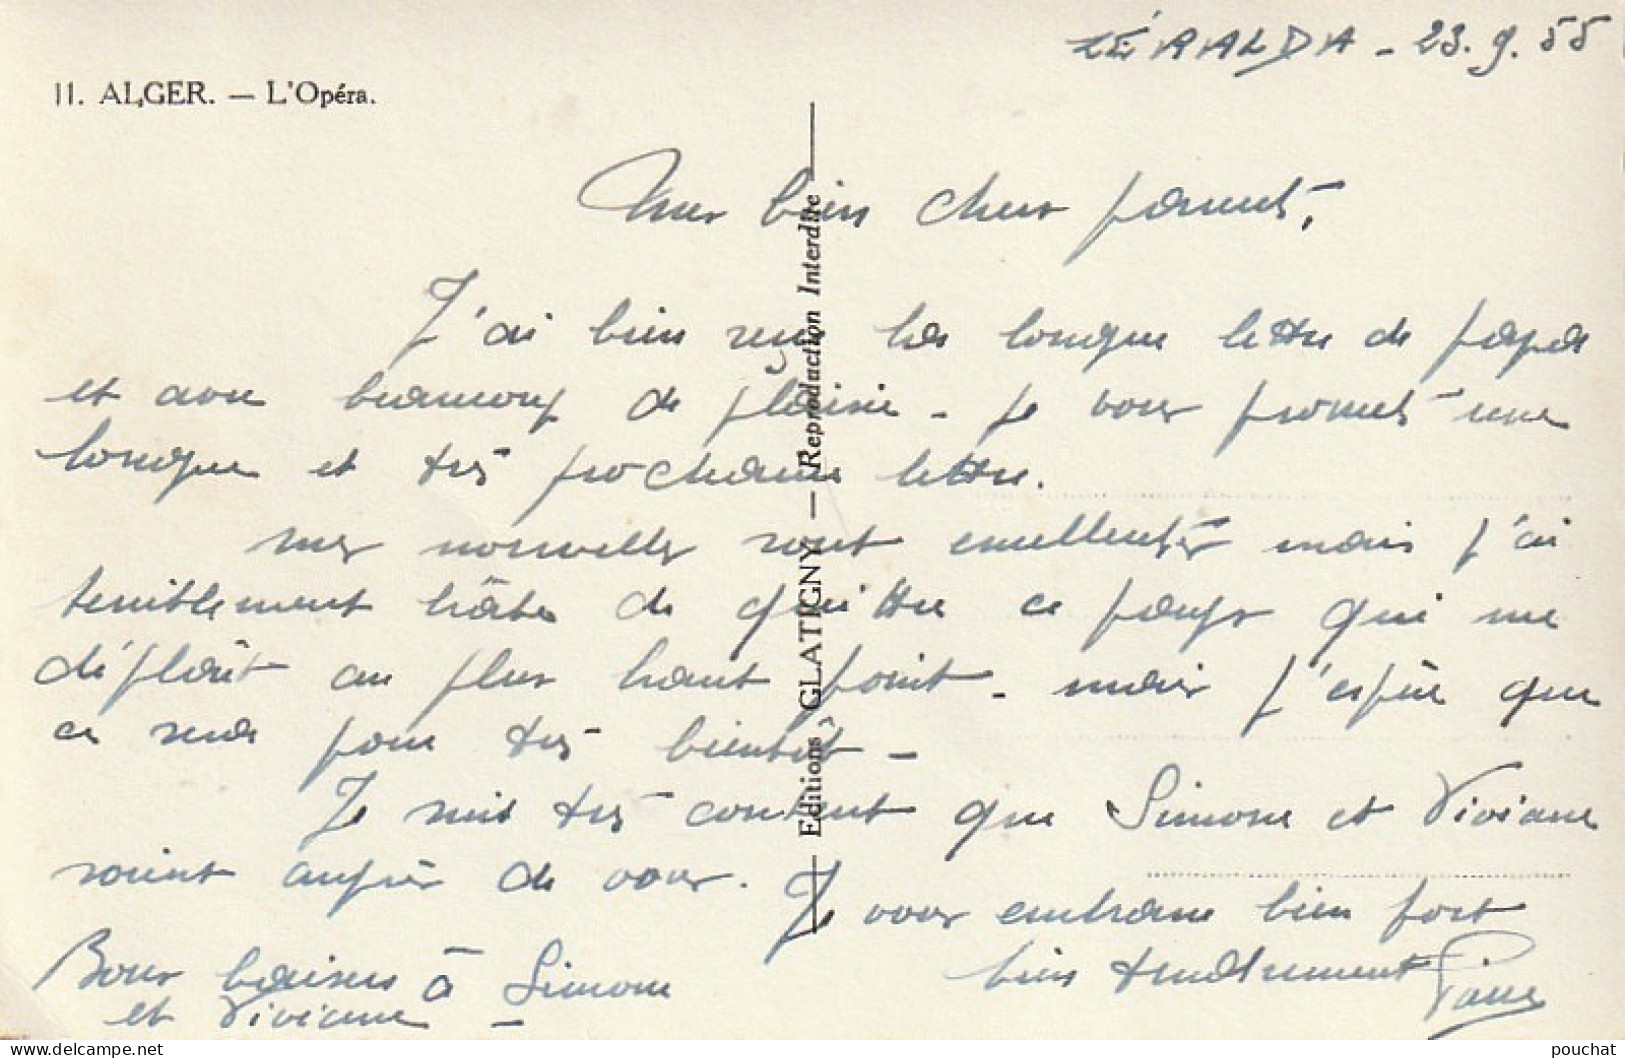 ZÉRALDA - 23.9.55
11. ALGER. — L'Opéra.
Mes bien chers parents,
J'ai bien reçu la longue lettre de papa
et avec beaucoup de plaisir - je vous promets une
longue et très prochaine lettre.
mes nouvelles sont excellentes mais j'ai
terriblement hâte de quitter ce pays qui me
déplaît au plus haut point - mais j'espère que
ce sera pour très bientôt -
Je suis très content que Simone et Viviane
soient auprès de vous.
Je vous embrasse bien fort
bien tendrement
Bons baisers à Simone
et Viviane -
Editions GLATIGNY — Reproduction Interdite
pouchat